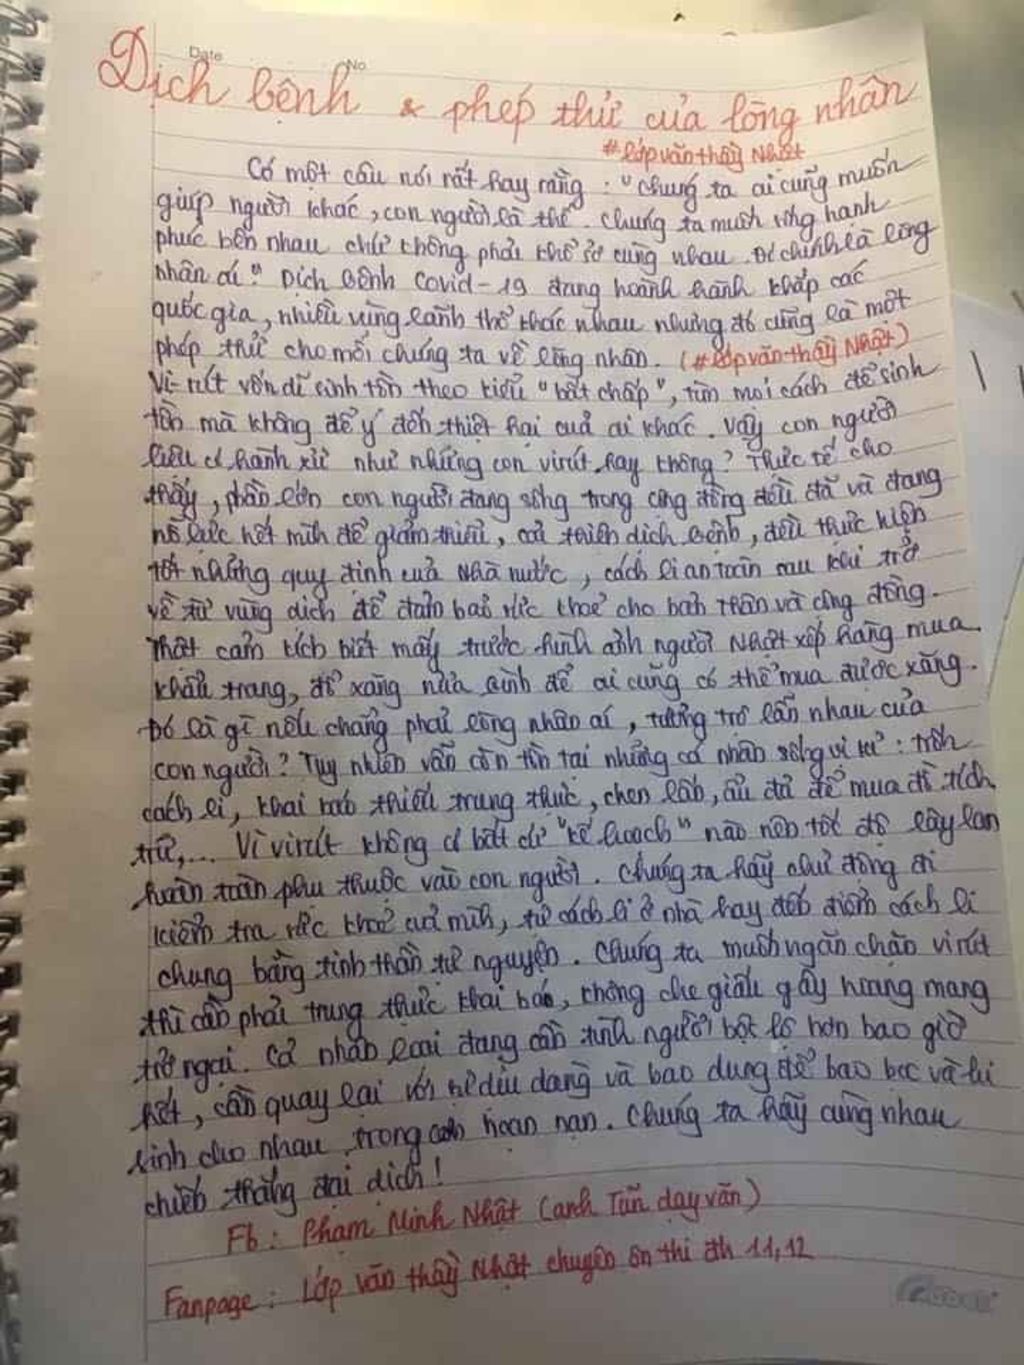 Date No
Dịch bệnh & phép thử của lòng nhân
#lớpvănthầyNhật
Có một câu nói rất hay rằng : "chúng ta ai cũng muốn
giúp người khác, con người là thế. Chúng ta muốn sống hạnh
phúc bên nhau chứ không phải khổ sở cùng nhau. Đó chính là lòng
nhân ái". Dịch bệnh Covid-19 đang hoành hành khắp các
quốc gia, nhiều vùng lãnh thổ khác nhau nhưng đó cũng là một
phép thử cho mỗi chúng ta về lòng nhân. (#lớpvănthầyNhật)
Vi-rút vốn dĩ sinh tồn theo kiểu "bất chấp", tìm mọi cách để sinh
tồn mà không để ý đến thiệt hại của ai khác. Vậy con người
liệu có hành xử như những con virút hay không? Thực tế cho
thấy, phần lớn con người đang sống trong cộng đồng đều đã và đang
nỗ lực hết mình để giảm thiểu, cả thiên dịch bệnh, đều thực hiện
tốt những quy định của Nhà nước, cách li an toàn sau khi trở
về từ vùng dịch để đảm bảo sức khoẻ cho bản thân và cộng đồng.
Thật cảm kích biết mấy trước hình ảnh người Nhật xếp hàng mua
khẩu trang, đổ xăng nửa bình để ai cũng có thể mua được xăng.
Đó là gì nếu chẳng phải lòng nhân ái, tương trợ lẫn nhau của
con người? Tuy nhiên vẫn còn tồn tại những cá nhân sống vị kỉ : trốn
cách li, khai báo thiếu trung thực, chen lấn, ẩu đả để mua đồ tích
trữ,... Vì virút không có bất cứ "kế hoạch" nào nên tốc độ lây lan
hoàn toàn phụ thuộc vào con người. Chúng ta hãy chủ động đi
kiểm tra sức khoẻ của mình, tự cách li ở nhà hay đến điểm cách li
chung bằng tinh thần tự nguyện. Chúng ta muốn ngăn chặn virút
thì cần phải trung thực khai báo, không che giấu gây hoang mang
trở ngại. Cả nhân loại đang cần tình người bộc lộ hơn bao giờ
hết, cần quay lại với sự dịu dàng và bao dung để bao bọc và hi
sinh cho nhau trong cơn hoạn nạn. Chúng ta hãy cùng nhau
chiến thắng đại dịch!
Fb : Phạm Minh Nhật (anh Tũn dạy văn)
Fanpage : Lớp văn thầy Nhật chuyên ôn thi đh 11,12